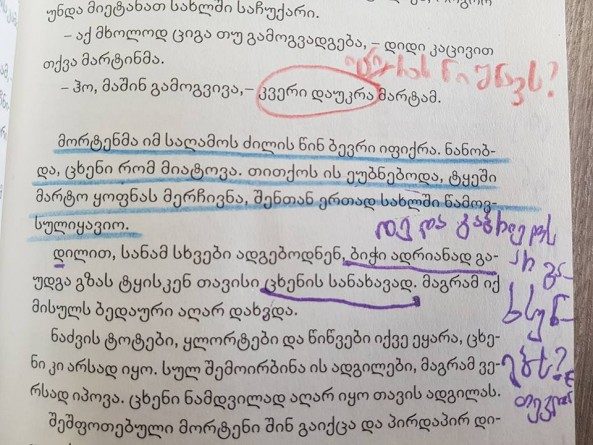 უნდა მიეტანათ სახლში საჩუქარი.
– აქ მხოლოდ ციგა თუ გამოგვადგება, – დიდი კაცივით
თქვა მარტინმა.
– ჰო, მაშინ გამოგვივა, – კვერი დაუკრა მარტამ.
მორტენმა იმ საღამოს ძილის წინ ბევრი იფიქრა. ნანობ-
და, ცხენი რომ მიატოვა. თითქოს ის ეუბნებოდა, ტყეში
მარტო ყოფნას მერჩივნა, შენთან ერთად სახლში წამოვ-
სულიყავიო.
დილით, სანამ სხვები ადგებოდნენ, ბიჭი ადრიანად გა-
უდგა გზას ტყისკენ თავისი ცხენის სანახავად. მაგრამ იქ
მისულს ბედაური აღარ დახვდა.
ნაძვის ტოტები, ყლორტები და წიწვები იქვე ეყარა, ცხე-
ნი კი არსად იყო. სულ შემოირბინა ის ადგილები, მაგრამ ვე-
რსად იპოვა. ცხენი ნამდვილად აღარ იყო თავის ადგილას.
შეშფოთებული მორტენი შინ გაიქცა და პირდაპირ დი-